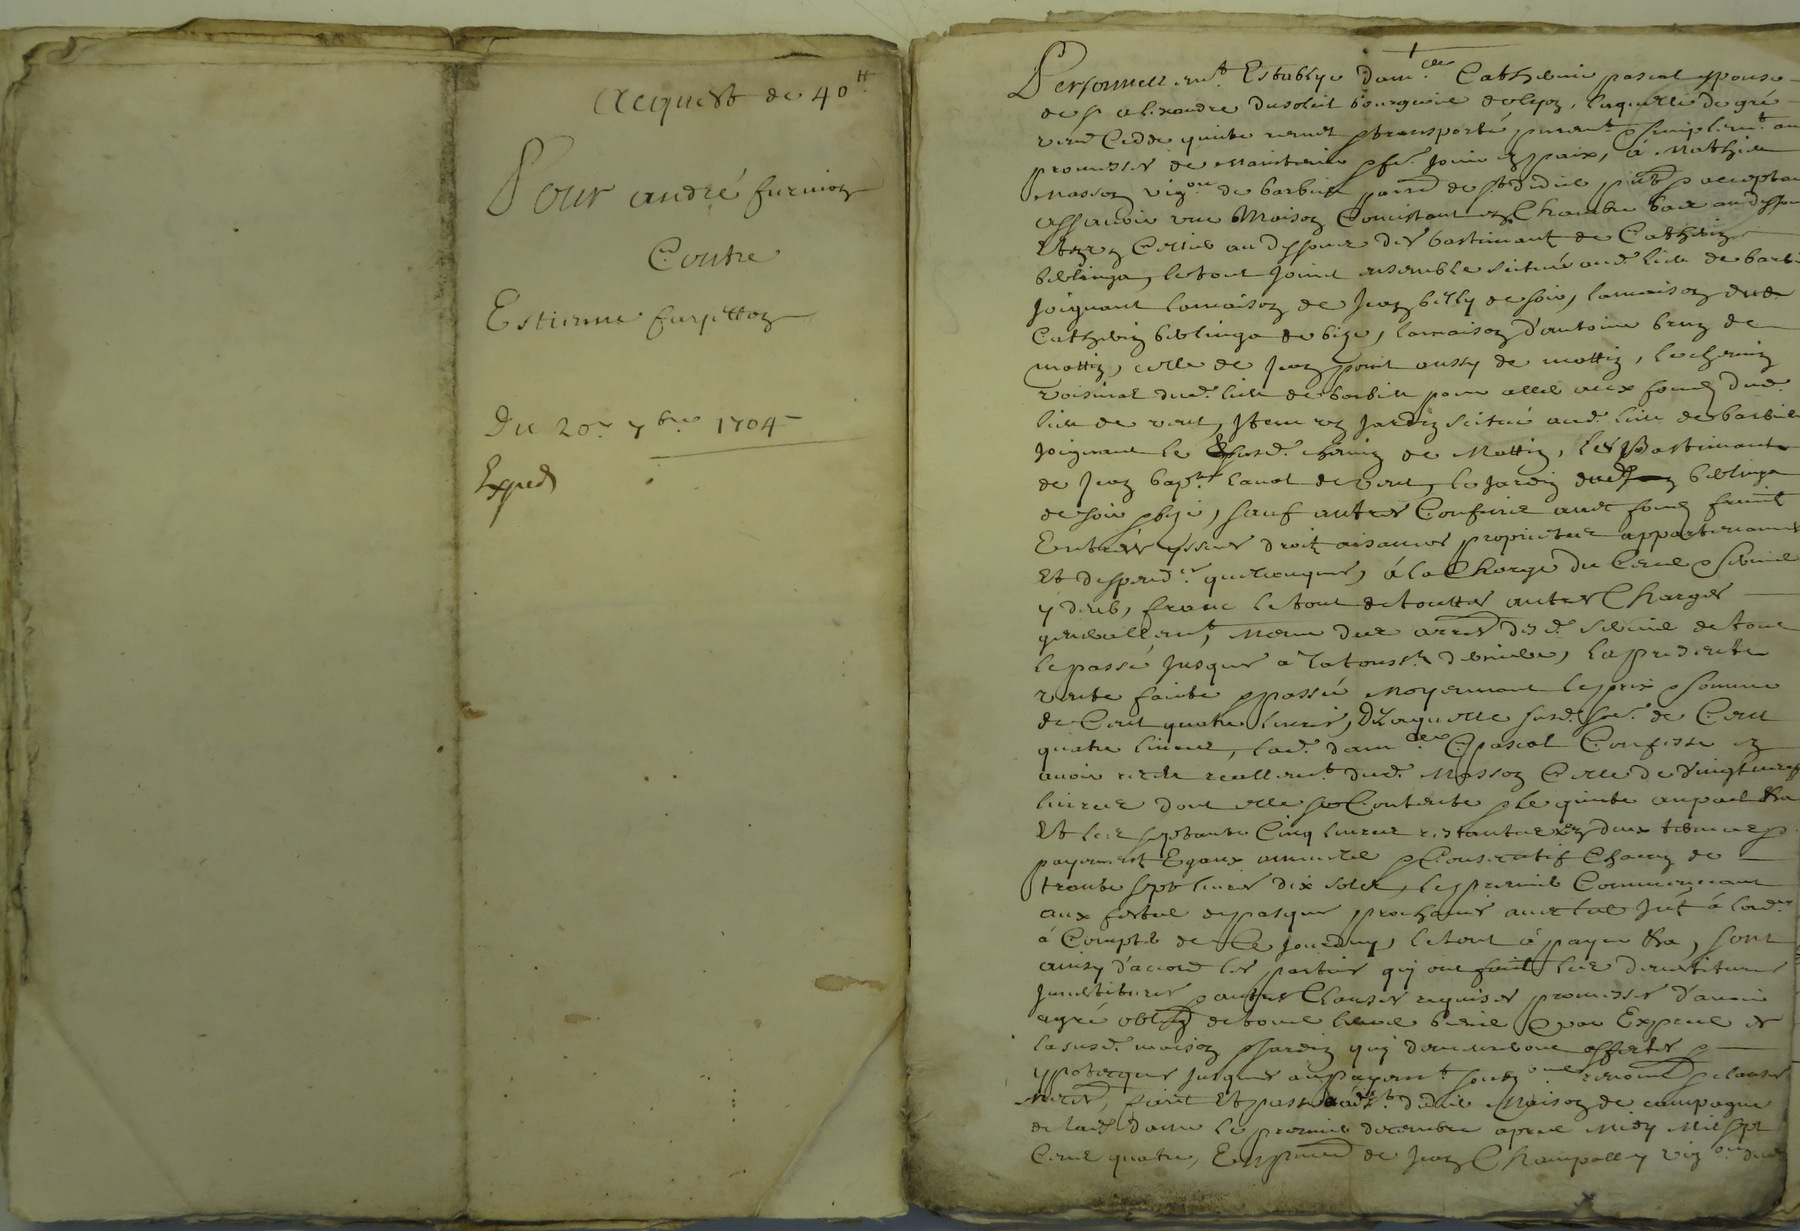 Acquest de 40 ℔
Pour andré furnion
Contre
Estienne
Du 20e 7bre 1704
Exped
Personnellemt Establye damlle Catherine pascal espouse
de sr alexandre dusoleil bourgeois de lyon, laquelle de gré
vend Cedde quitte remet & transporte purement & simplemt au
promesses de Maintenir & fe. Jouir en paix, à Mathieu
Masson vigon de barbier parre de st didier pnt & acceptant
assavoir une Maison Consistant en Chambre basse au dessus
Et un Cellier au dessous des bastimant de Catherin
le tout Joint ensemble scitué aud. lieu de barbi
Joignant la maison de Jean billy de soir, la maison dud.
Catherin de bize, la maison d'antoine brun de
mattin, celle de Jean point aussy de mattin, le chemin
voisinal dud. lieu de barbier pour aller aux fonds dud.
lieu de vent, Item un Jardin scitué aud. lieu de barbier
Joignant le susd. chemin de Mattin, les Bastimants
de Jean bapt. lavat de vent, le Jardin dud.
de soir & bize, sauf autres Confins avec fonds fruits
Entrées yssues droits aisances proprietes appartenances
Et despend.ces quelconques, à la Charge du Cens & servis
y deub, franc le tout de touttes autres Charges
generallemt, Mesme des arres desd. servis de tout
le passé Jusques a la touss.ts derniere, la presente
vente faitte & passée Moyennant le prix & somme
de Cent quatre livres, De laquelle susd. soe. de Cent
quatre livres, lad. damlle pascal Confesse en
avoir receu reallemt dud. Masson Celle de vingt neuf
livres dont elle se Contente & le quitte au pael &a
Et les septante Cinq livres restantes en deux termes &
payements Egaux annuels & Consecutifs Chacun de
trente sept livres dix sols, le premier Commencant
aux festes de pasques prochaines avec les Jnt à lord.re
à Compter de Ce Jourdhuy, le tout à payer &a, sont
ainsy d'accord les parties quy ont fait les devestitures
Investitures & autres Clauses requises promesses d'avoir
agré oblig de tous leurs biens & par Expres de
la susd. maison & Jardin quy demeurent affectes &
ypotecques Jusques au payemt soubz renond & clauses
necres, fait Et passé aud. st didier Maison de campagne
de lad. dame le premier decembre apres Midy Mil sept
Cent quatre, En pnce de Jean Champally vigon dud.